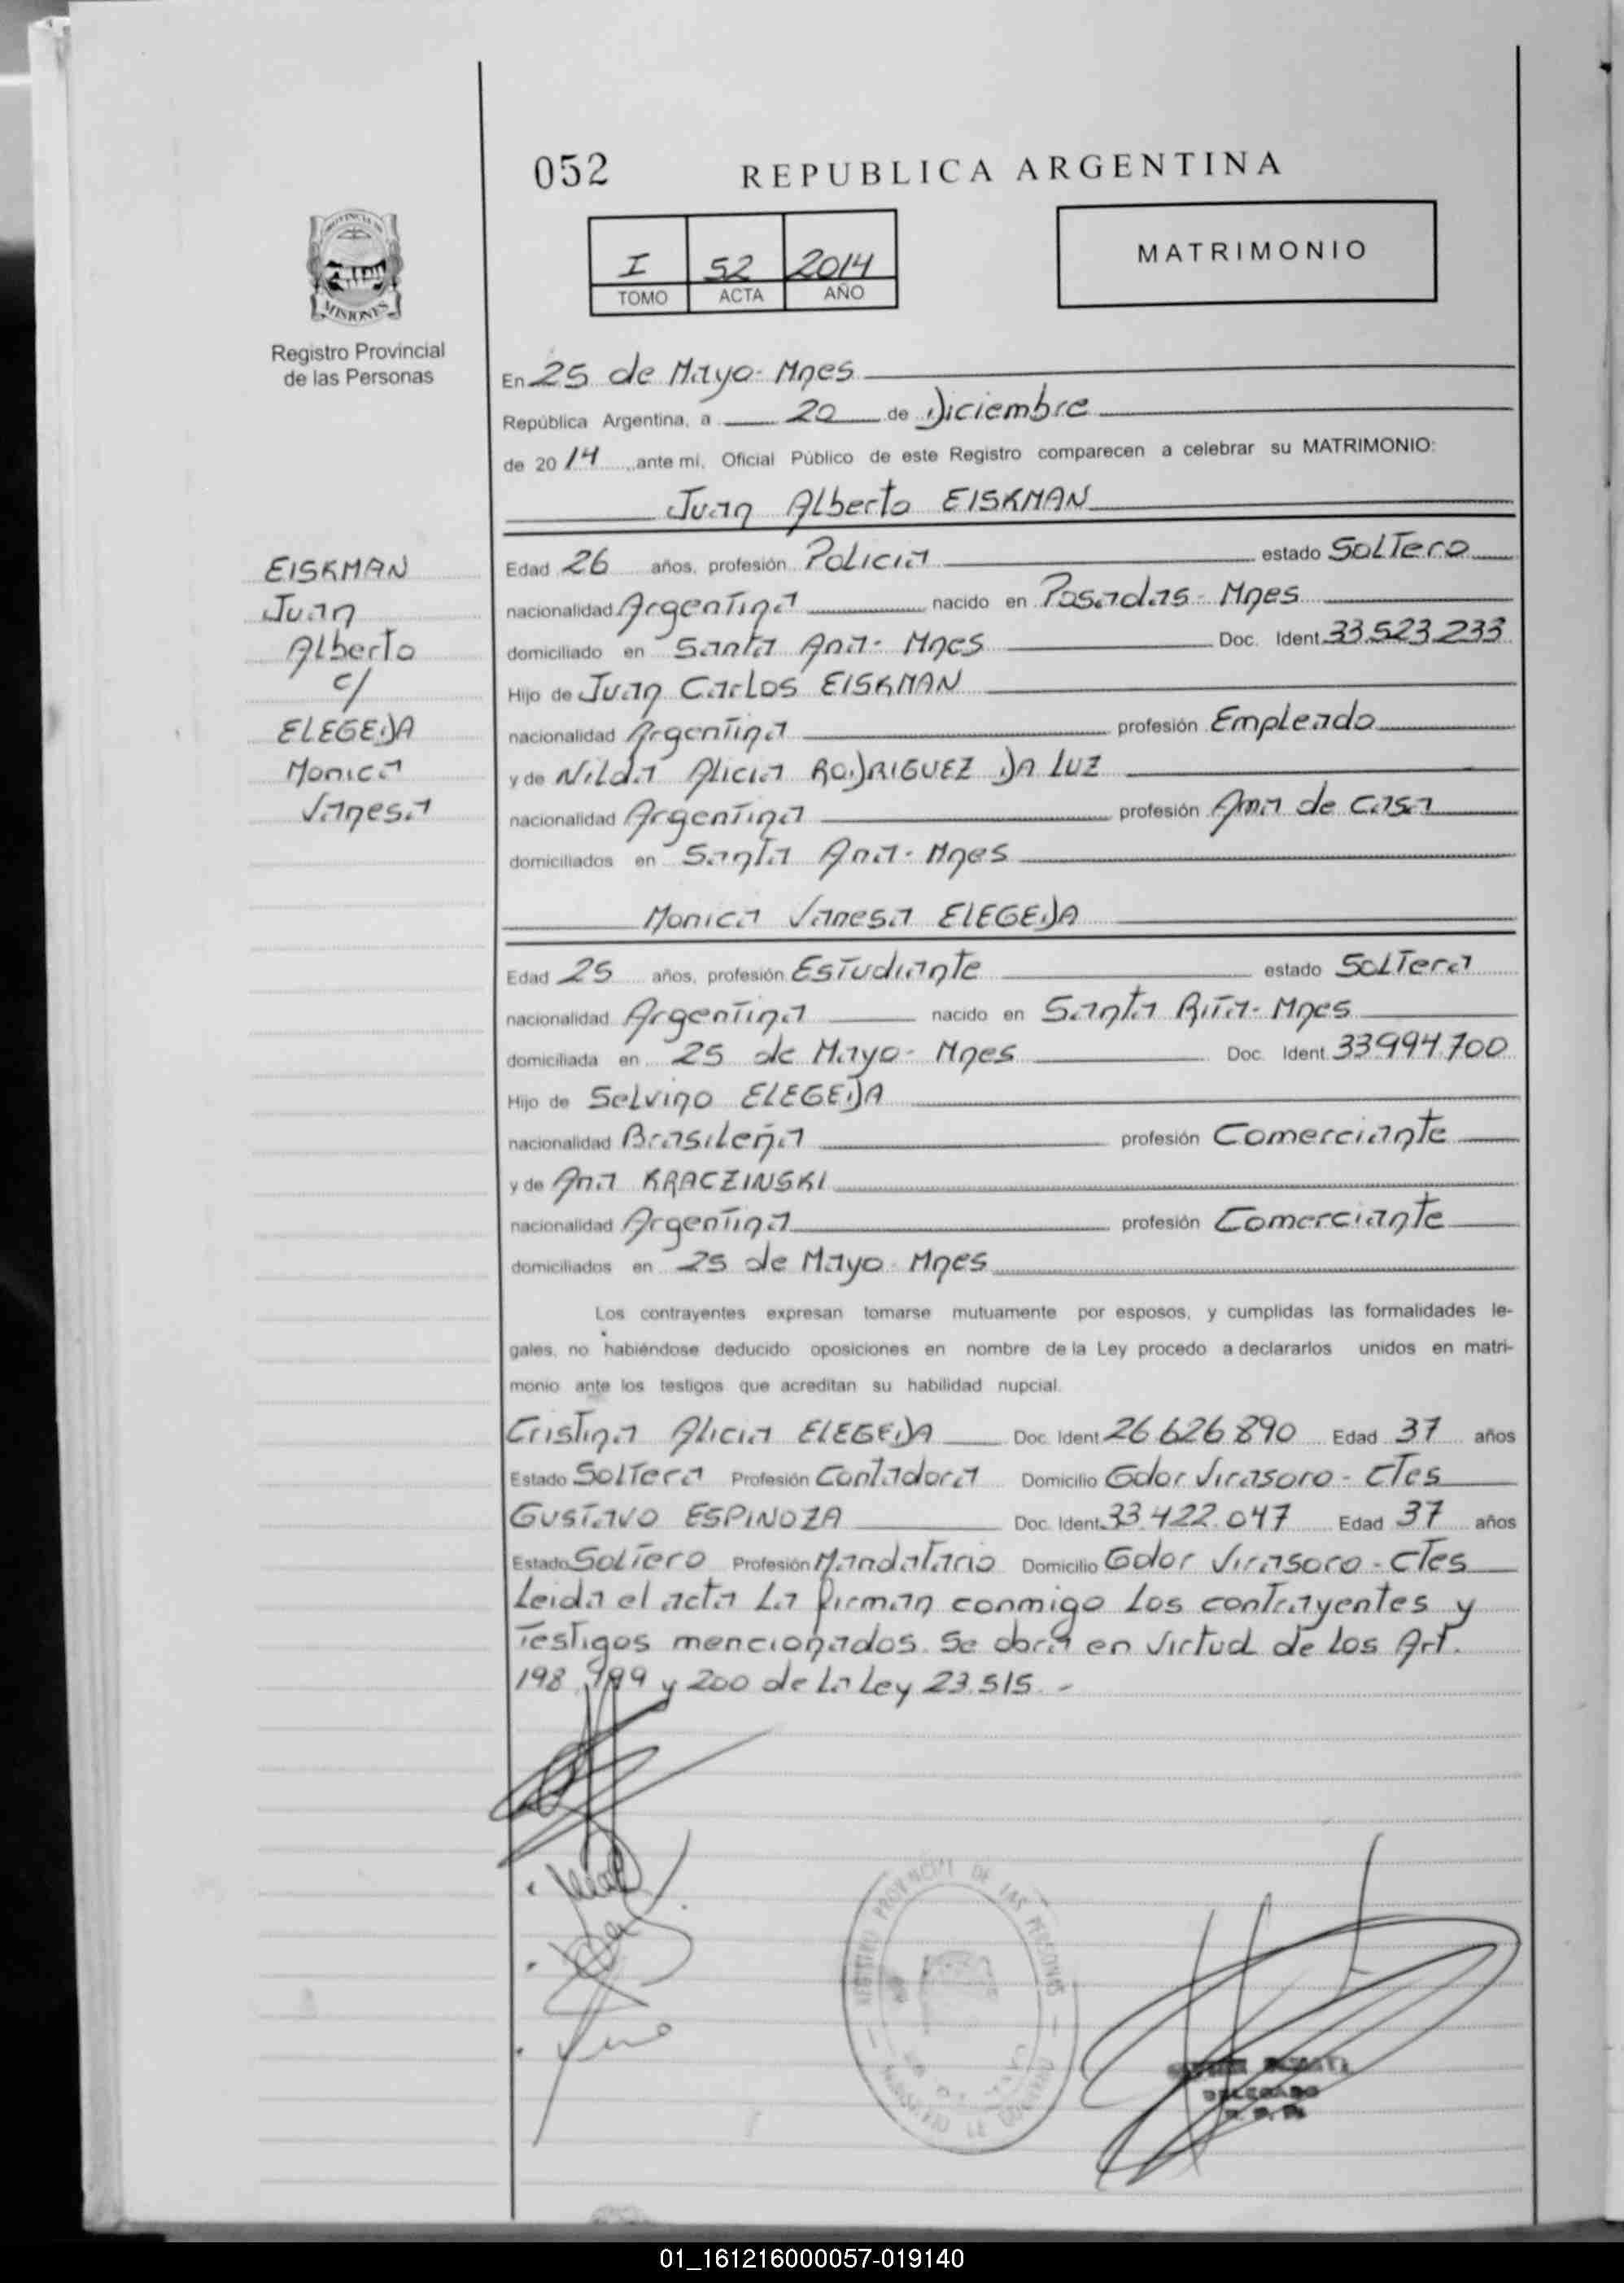 052 REPUBLICA ARGENTINA
PROVINCIA DE
MISIONES
Registro Provincial
de las Personas
I 52 2014
TOMO ACTA AÑO
MATRIMONIO
En 25 de Mayo - Mnes
República Argentina, a 20 de Diciembre
de 2014, ante mi, Oficial Público de este Registro comparecen a celebrar su MATRIMONIO:
Juan Alberto EISKMAN
EISKMAN
Juan
Alberto
c/
ELEGEDA
Monica
Vanesa
Edad 26 años, profesión Policia estado Soltero
nacionalidad Argentina nacido en Posadas - Mnes
domiciliado en Santa Ana - Mnes Doc. Ident. 33.523.233
Hijo de Juan Carlos EISKMAN
nacionalidad Argentina profesión Empleado
y de Nilda Alicia RODRIGUEZ DA LUZ
nacionalidad Argentina profesión Ama de casa
domiciliados en Santa Ana - Mnes
Monica Vanesa ELEGEDA
Edad 25 años, profesión Estudiante estado Soltera
nacionalidad Argentina nacido en Santa Rita - Mnes
domiciliada en 25 de Mayo - Mnes Doc. Ident. 33.994.700
Hijo de Selvino ELEGEDA
nacionalidad Brasileña profesión Comerciante
y de Ana KRACZINSKI
nacionalidad Argentina profesión Comerciante
domiciliados en 25 de Mayo - Mnes
Los contrayentes expresan tomarse mutuamente por esposos, y cumplidas las formalidades le-
gales, no habiéndose deducido oposiciones en nombre de la Ley procedo a declararlos unidos en matri-
monio ante los testigos que acreditan su habilidad nupcial.
Cristina Alicia ELEGEDA Doc. Ident. 26.626.890 Edad 37 años
Estado Soltera Profesión Contadora Domicilio Gdor Virasoro - CTes
Gustavo ESPINOZA Doc. Ident. 33.422.047 Edad 37 años
Estado Soltero Profesión Mandatario Domicilio Gdor Virasoro - CTes
Leida el acta La firman conmigo Los contrayentes y
Testigos mencionados. Se obra en Virtud de Los Art.
198, 199 y 200 de La Ley 23.515. -
REGISTRO PROVINCIAL DE LAS PERSONAS
MINISTERIO DE GOBIERNO
DELEGADO
01_161216000057-019140